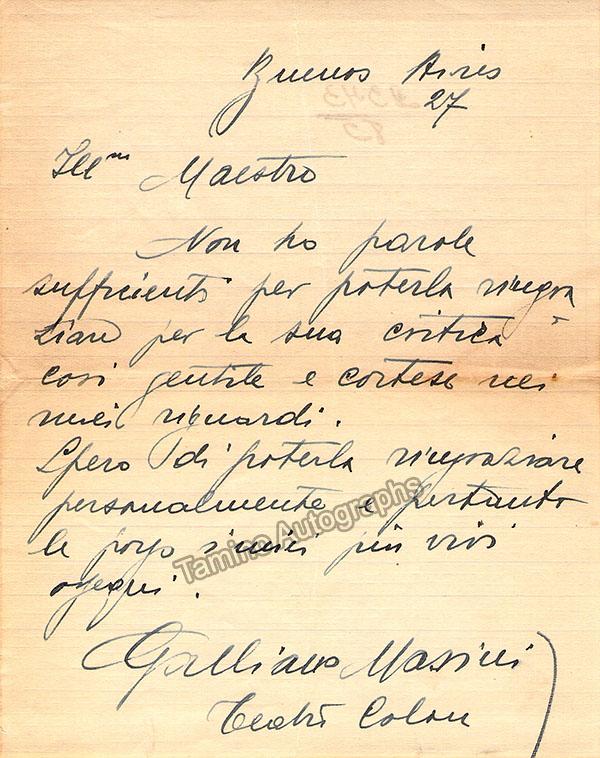 Buenos Aires
27
Ill.mo Maestro
Non ho parole
sufficienti per poterla ringra
ziare per la sua critica
cosi gentile e cortese nei
miei riguardi.
Spero di poterla ringraziare
personalmente e pertanto
le porgo i miei più vivi
ossequi.
Galliano Masini
Teatro Colon
Tamino Autographs